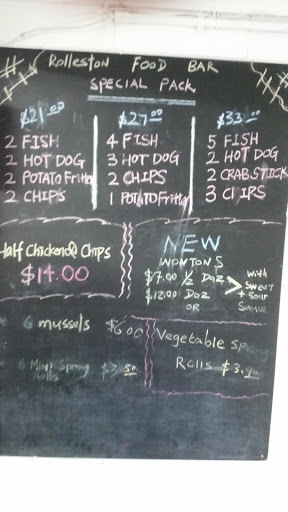 Rolleston FOOD BAR
SPECIAL PACK
$21.00
2 FISH
2 HOT DOG
2 POTATO Fritter
2 CHIPS
$27.00
4 FISH
3 HOT DOG
2 CHIPS
1 POTATO Fritter
$33.00
5 FISH
2 HOT DOG
2 CRABSTICK
3 CHIPS
Half Chicken & Chips
$14.00
NEW
WONTONS
$7.00 ½ Doz
$12.00 Doz
OR
with
Sweet
+ Sour
Sauce
6 mussels $6.00
6 Mini Spring
Rolls
Vegetable Spring
Rolls $3.